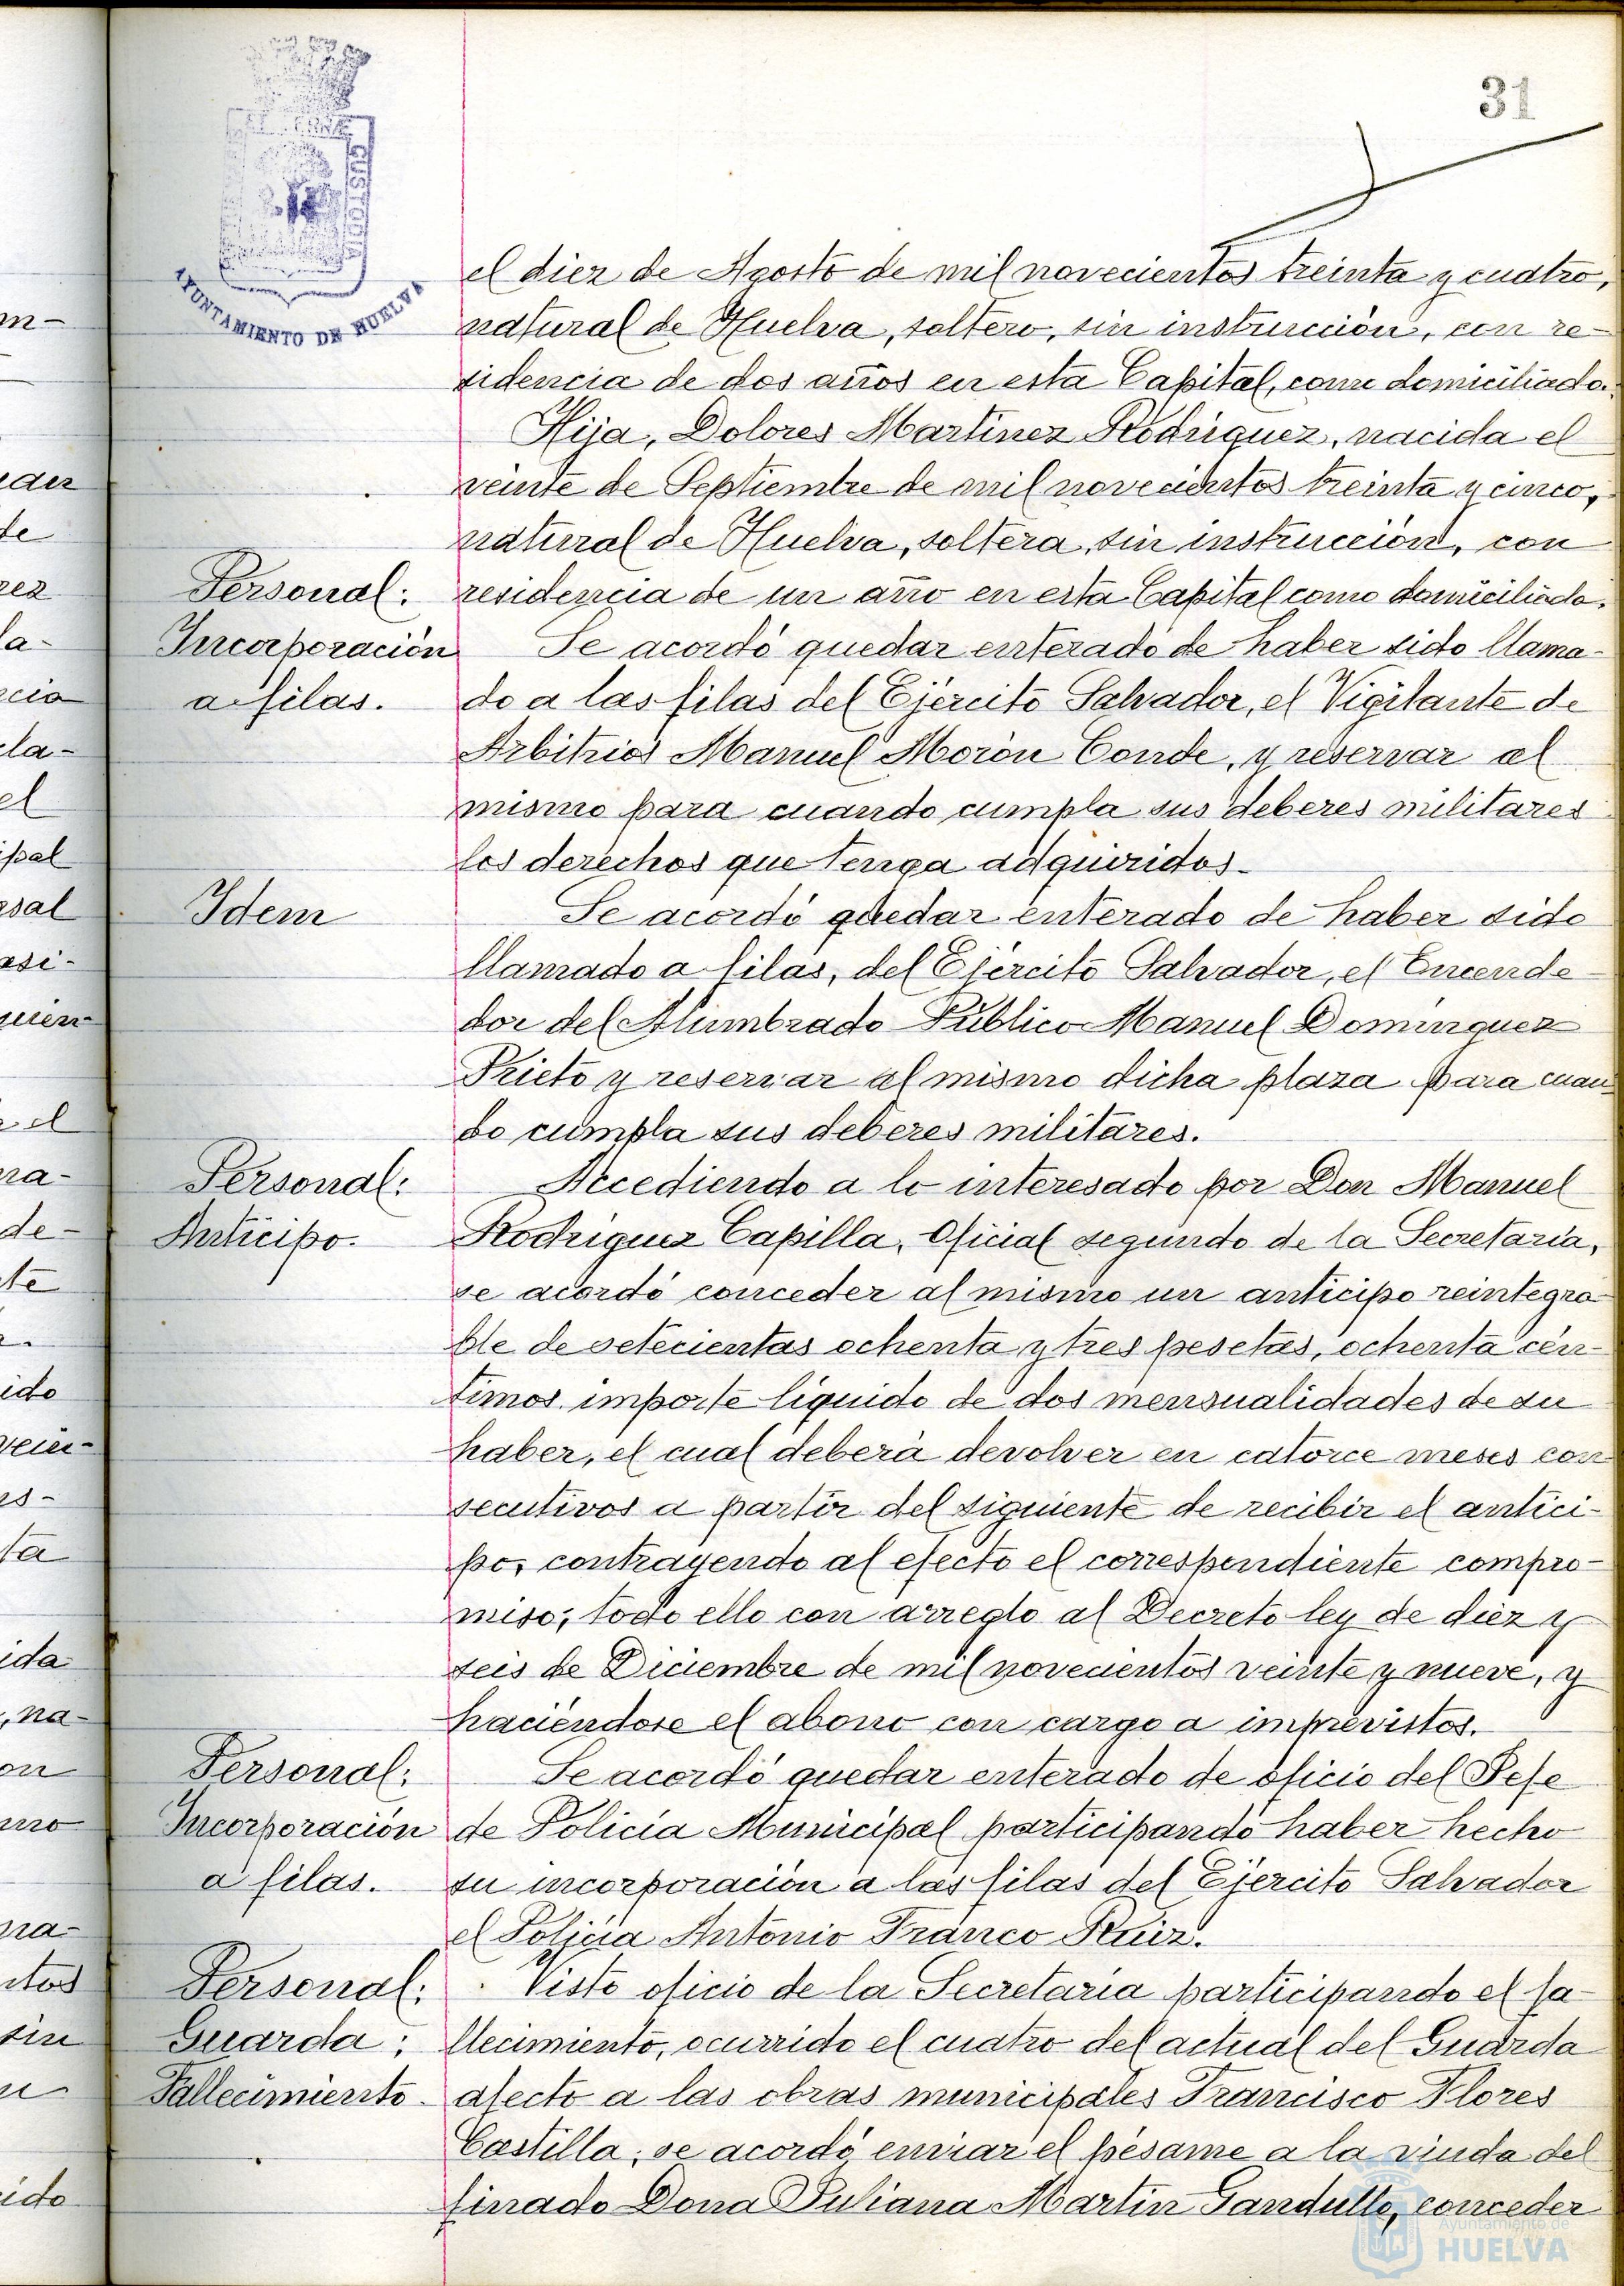 31
CUSTODIA
AYUNTAMIENTO DE HUELVA
el diez de Agosto de mil novecientos treinta y cuatro,
natural de Huelva, soltero, sin instrucción, con re-
sidencia de dos años en esta Capital, como domiciliado.
Hija, Dolores Martínez Rodríguez, nacida el
veinte de Septiembre de mil novecientos treinta y cinco,
natural de Huelva, soltera, sin instrucción, con
Personal: residencia de un año en esta Capital como domiciliada.
Incorporación Se acordó quedar enterado de haber sido llama-
a filas. do a las filas del Ejército Salvador, el Vigilante de
Arbitrios Manuel Morón Conde, y reservar al
mismo para cuando cumpla sus deberes militares
los derechos que tenga adquiridos.
Idem Se acordó quedar enterado de haber sido
llamado a filas, del Ejército Salvador, el Encende-
dor del Alumbrado Público Manuel Domínguez
Prieto y reservar al mismo dicha plaza para cuan-
do cumpla sus deberes militares.
Personal: Accediendo a lo interesado por Don Manuel
Anticipo. Rodríguez Capilla, Oficial segundo de la Secretaría,
se acordó conceder al mismo un anticipo reintegra-
ble de setecientas ochenta y tres pesetas, ochenta cén-
timos, importe líquido de dos mensualidades de su
haber, el cual deberá devolver en catorce meses con-
secutivos a partir del siguiente de recibir el antici-
po, contrayendo al efecto el correspondiente compro-
miso; todo ello con arreglo al Decreto ley de diez y
seis de Diciembre de mil novecientos veinte y nueve, y
haciéndose el abono con cargo a imprevistos.
Personal: Se acordó quedar enterado de oficio del Jefe
Incorporación de Policía Municipal participando haber hecho
a filas. su incorporación a las filas del Ejército Salvador
el Policía Antonio Franco Ruiz.
Personal: Visto oficio de la Secretaría participando el fa-
Guarda: llecimiento, ocurrido el cuatro del actual del Guarda
Fallecimiento. afecto a las obras municipales Francisco Flores
Castilla, se acordó enviar el pésame a la viuda del
finado Dona Juliana Martín Gandullo, conceder
Ayuntamiento de
HUELVA